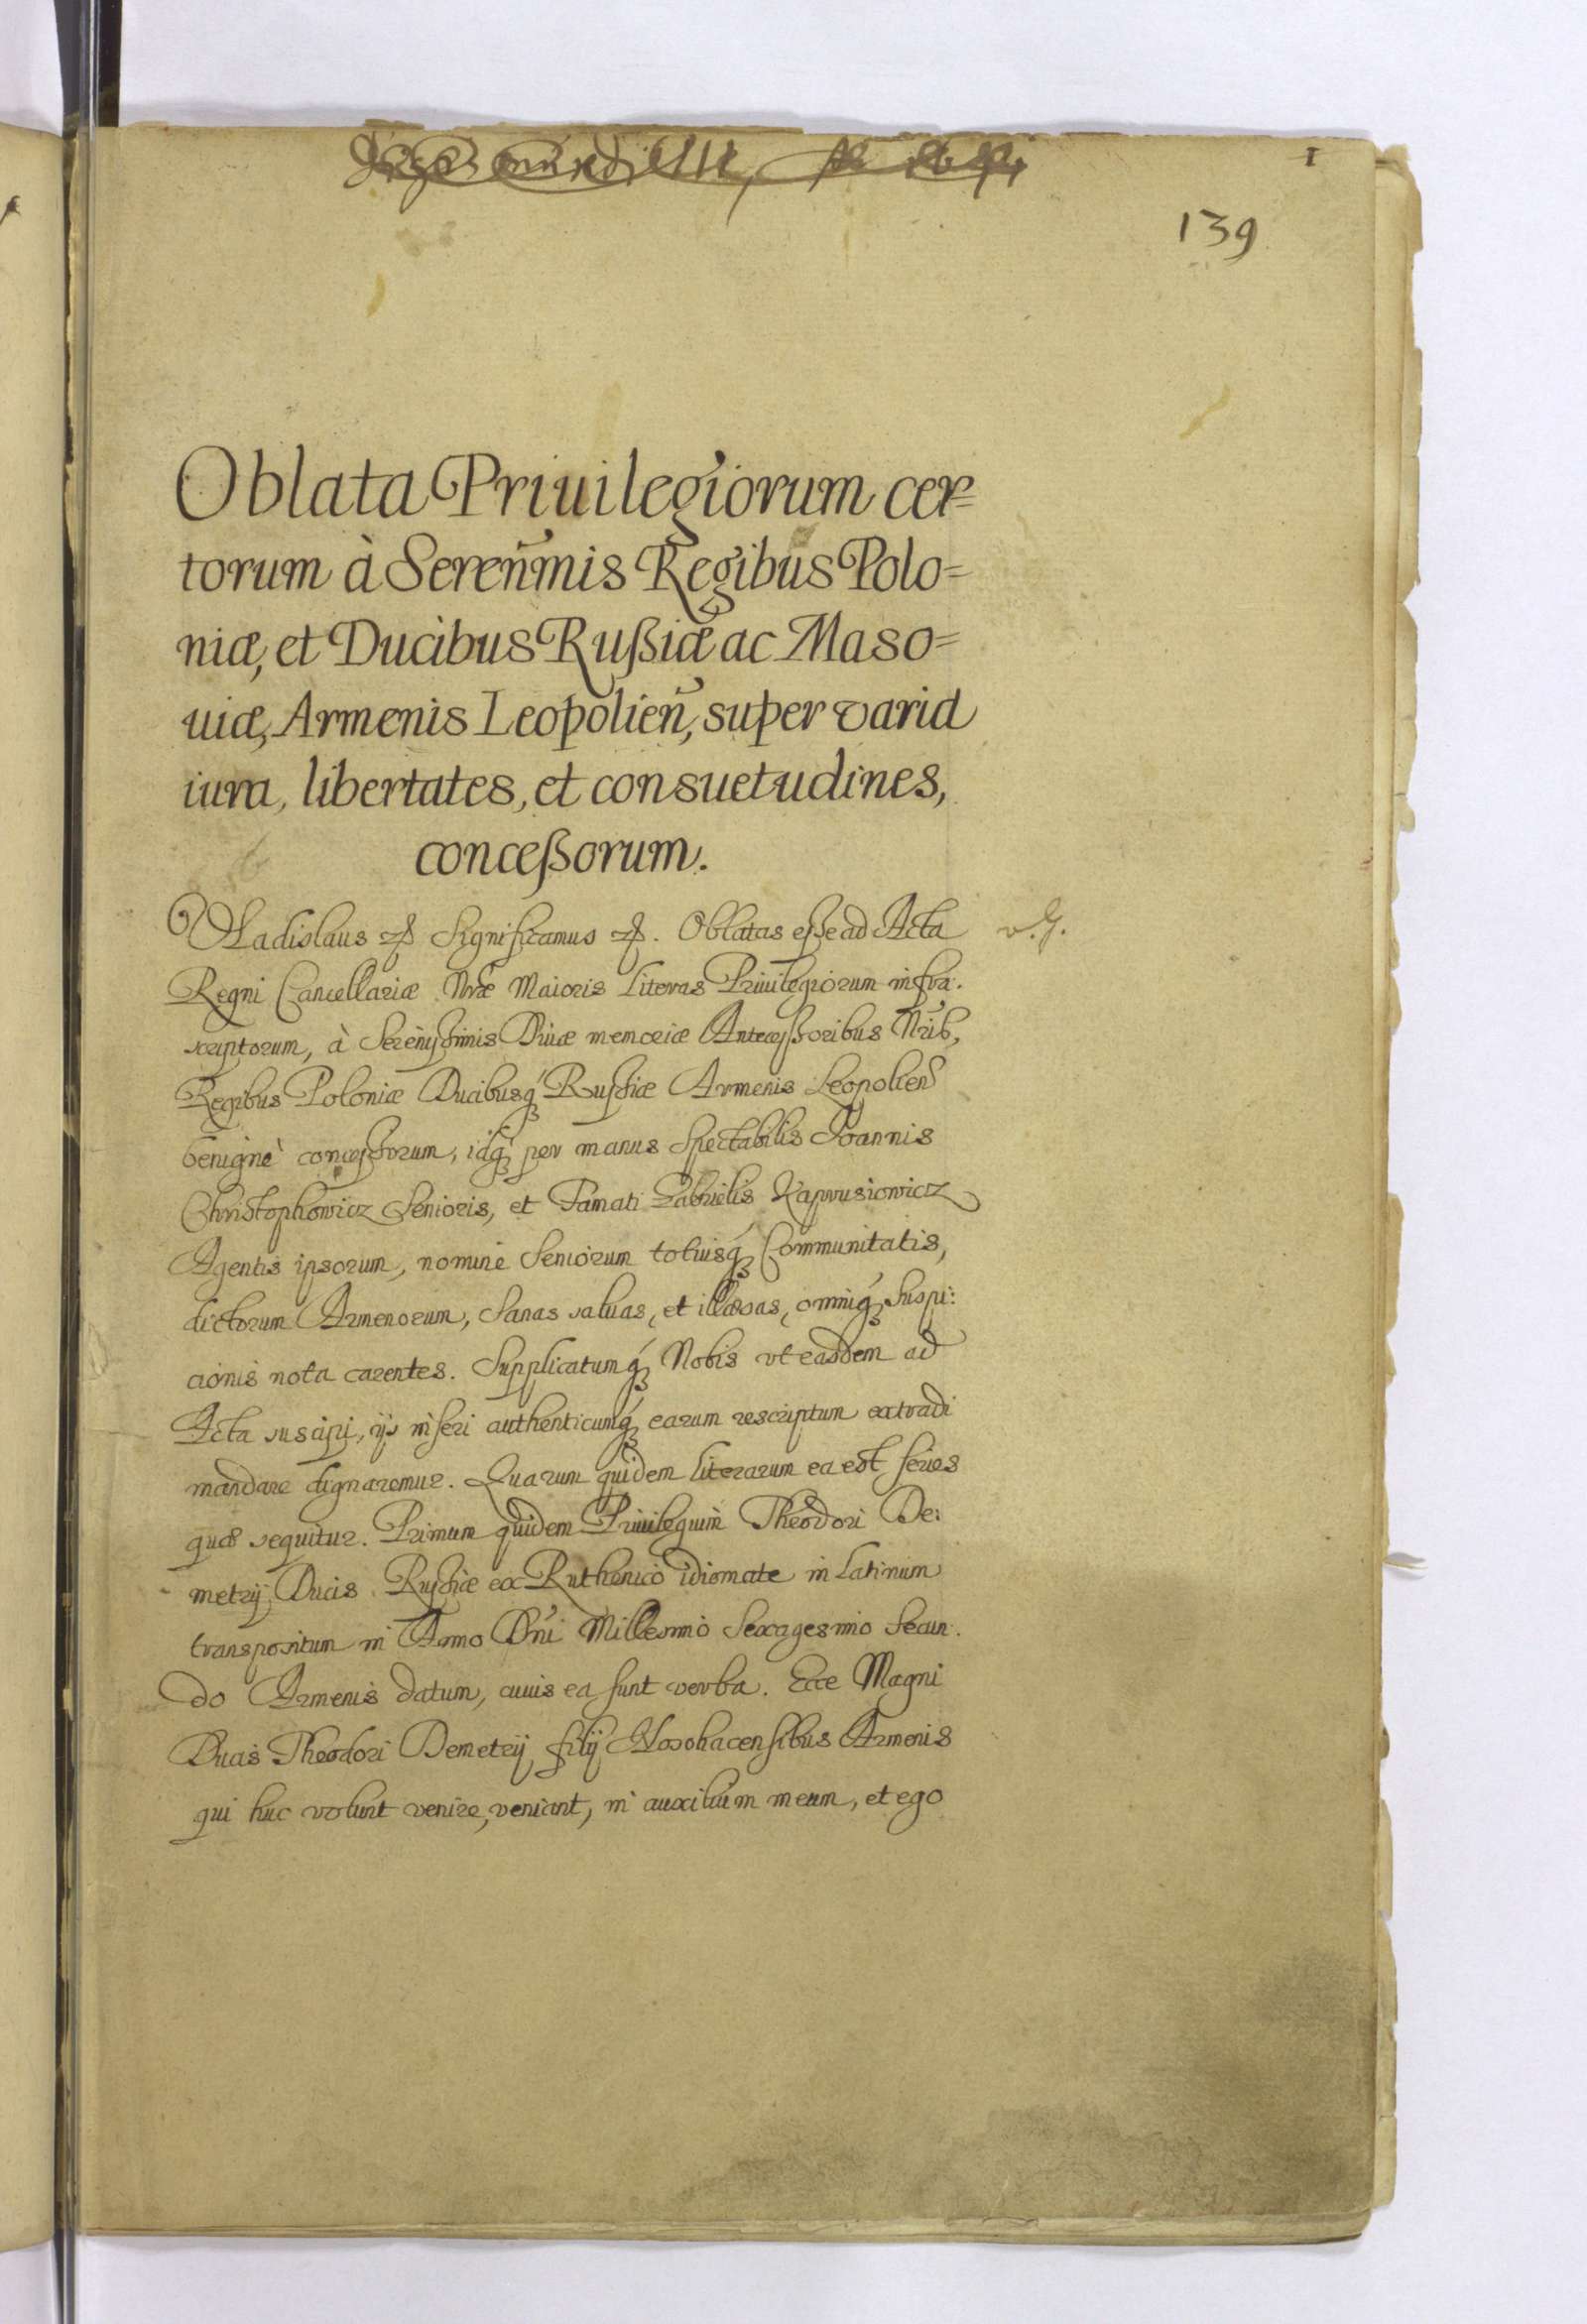 1
139
Oblata Priuilegiorum cer=
torum à Serenmis Regibus Polo=
niæ, et Ducibus Rußiæ ac Maso=
uiæ, Armenis Leopolien̄, super varia
iura, libertates, et consuetudines,
conceßorum.
Vladislaus etc Significamus etc. Oblatas eße ad Acta
v. G.
Regni Cancellariæ Nræ Maioris Literas Priuilegiorum infra:
scriptorum, à Serenißimis Diuæ memoriæ Anteceßoribus Nris,
Regibus Poloniæ Ducibusq́ꝫ Rußiæ Armenis Leopolien
benignè conceßorum, idq́ꝫ per manus Spectabilis Ioannis
Christophowicz Senioris, et Famati Gabrielis Kaprusiowicz
Agentis ipsorum, nomine Seniorum totiusq́ꝫ Communitatis,
dictorum Armenorum, Sanas saluas, et illæsas, omniq́ꝫ Suspi:
cionis nota carentes. Supplicatumq́ꝫ Nobis vt easdem ad
Acta suscipi, ijs inseri authenticumq́ꝫ earum rescriptum extradi
mandare dignaremur. Quarum quidem literarum ea est series
quæ sequitur. Primum quidem Priuilegium Theodori De:
metrij Ducis Rußiæ ex Ruthenico idiomate in Latinum
transpositum in Anno Dni Millesimo Sexagesimo Secun:
do Armenis datum, cuius ea sunt verba. Ecce Magni
Ducis Theodori Demetrij filij Kosohacensibus Armenis
qui huc volunt venire, veniant, in auxilium meum, et ego